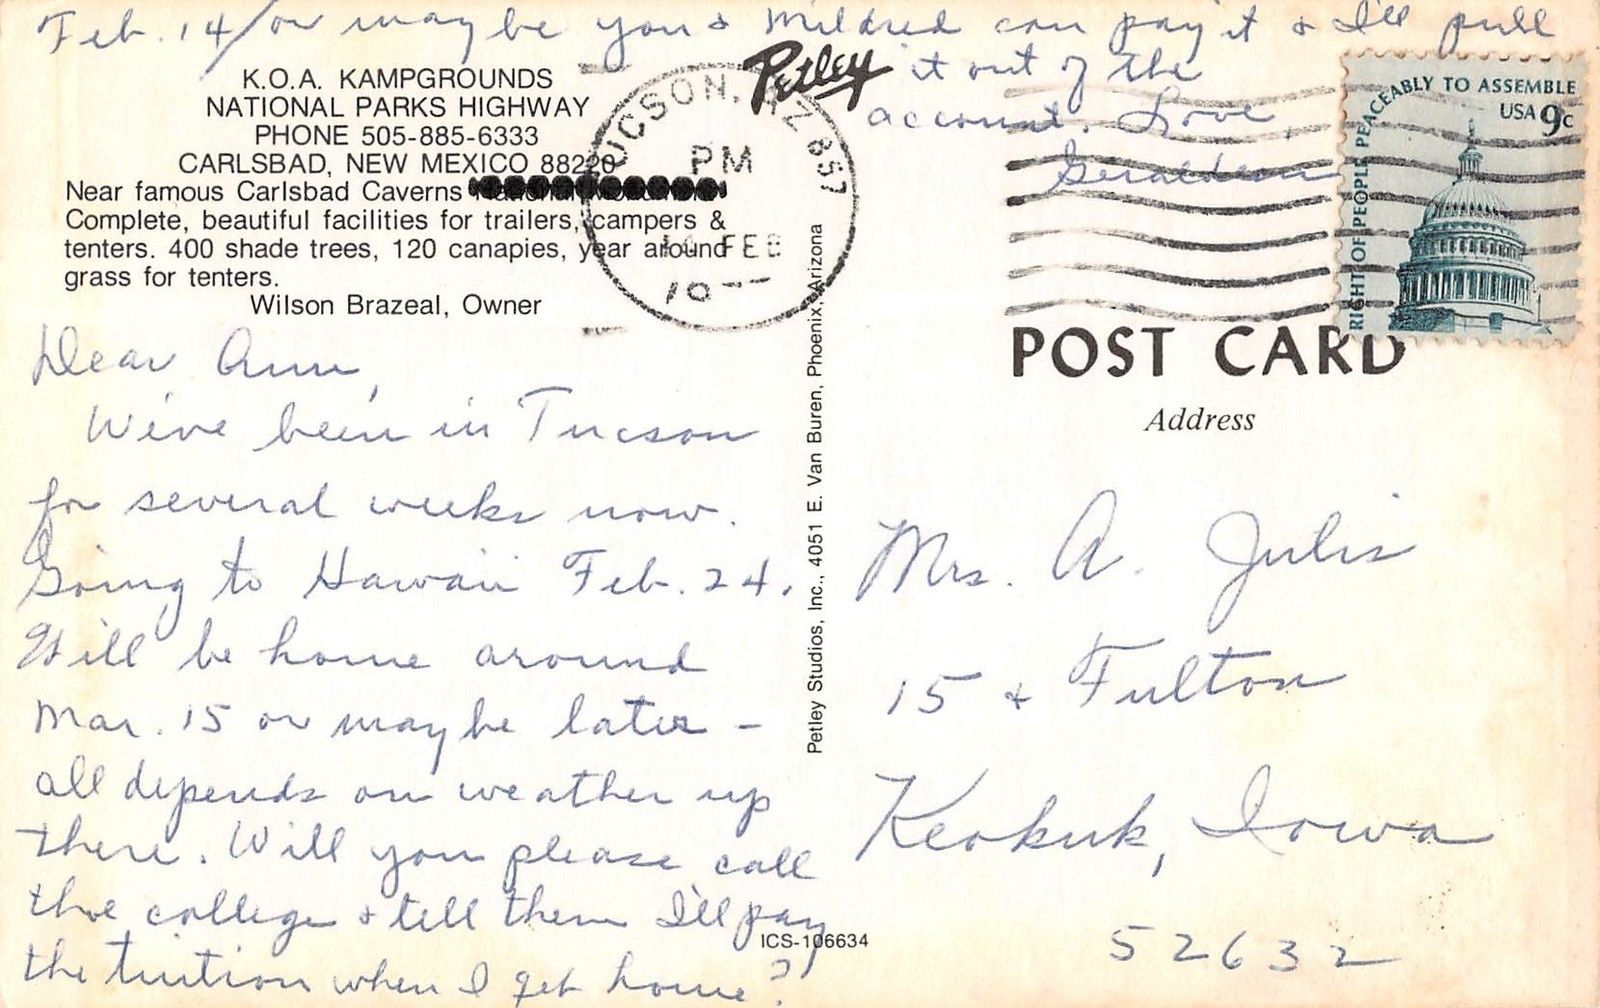 Feb. 14/or maybe you & Mildred can pay it & I'll pull
it out of the
account. Love,
Geraldean
Petley
K.O.A. KAMPGROUNDS
NATIONAL PARKS HIGHWAY
PHONE 505-885-6333
CARLSBAD, NEW MEXICO 88220
Near famous Carlsbad Caverns
Complete, beautiful facilities for trailers, campers &
tenters. 400 shade trees, 120 canapies, year around
grass for tenters.
Wilson Brazeal, Owner
TUCSON, AZ 857
PM
14 FEB
RIGHT OF PEOPLE PEACEABLY TO ASSEMBLE
USA 9c
POST CARD
Address
Dear Ann,
We've been in Tucson
for several weeks now.
Going to Hawaii Feb. 24.
Will be home around
Mar. 15 or maybe later –
all depends on weather up
there. Will you please call
the college & tell them I'll pay
the tuition when I get home?
Petley Studios, Inc., 4051 E. Van Buren, Phoenix, Arizona
ICS-106634
Mrs. A. Julis
15 & Fulton
Keokuk, Iowa
52632